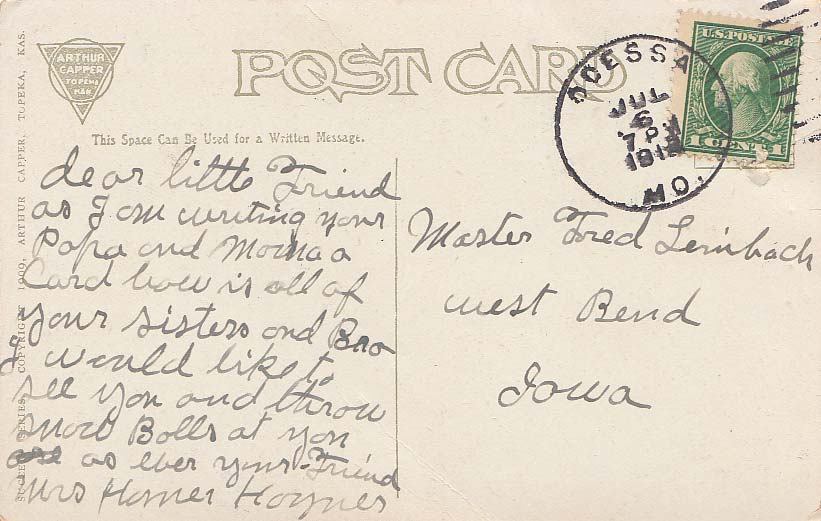 ARTHUR
CAPPER
TOPEKA
KAN.
POST CARD
This Space Can Be Used for a Written Message.
ODESSA
JUL
6
7 P
MO.
U.S. POSTAGE
1 CENT 1
dear little Friend
as I am writing your
Papa and Moma a
Card how is all of
your sisters and Bro
I would like to
see you and throw
snow Bolls at you
as ever your Friend
Mrs Homer Haynes
Master Fred Leinbach
West Bend
Iowa
SERIES, COPYRIGHT 1909, ARTHUR CAPPER, TOPEKA, KAS.